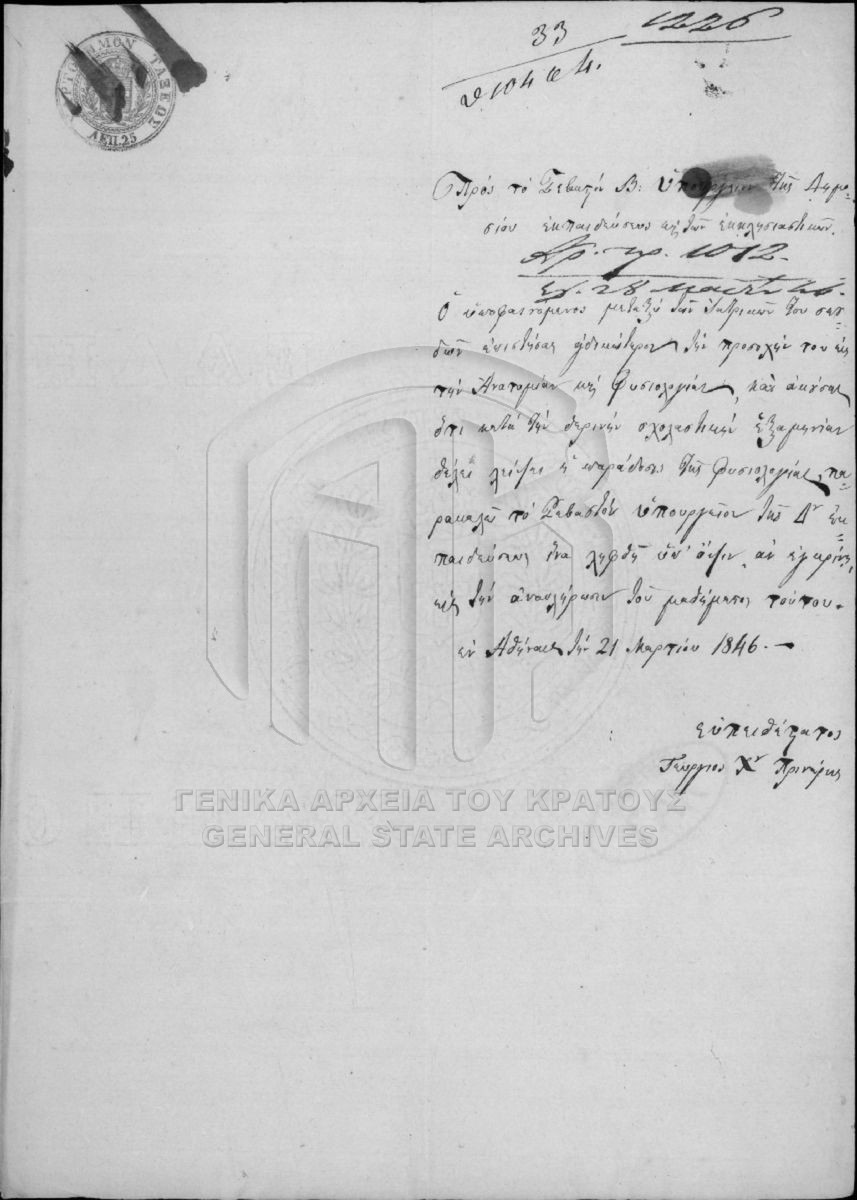 33
1226
104
ΤΑΞΕΩΣ
ΛΕΠ. 25
Πρὸς τὸ Σεβαστὸν Β: Ὑπουργεῖον τῆς Δημο=
σίου ἐκπαιδεύσεως καὶ τῶν ἐκκλησιαστικῶν.
Ἀρ. πρ. 1012.
28
Ὁ ὑποφαινόμενος μεταξὺ τῶν Ἰατρικῶν του σπου
δῶν ἐπιστήσας εἰδικώτερον τὴν προσοχήν του εἰς
τὴν Ἀνατομίαν καὶ Φυσιολογίαν, καὶ ἀκούσας
ὅτι κατὰ τὴν θερινὴν σχολαστικὴν ἑξαμηνίαν
θέλει λείψει ἡ παράδοσις τῆς Φυσιολογίας, πα=
ρακαλεῖ τὸ Σεβαστὸν Ὑπουργεῖον τῆς Δ. ἐκ=
παιδεύσεως ἵνα ληφθῇ ὑπ' ὄψιν, ἂν ἐγκρίνῃ,
εἰς τὴν ἀναπλήρωσιν τοῦ μαθήματος τούτου.
ἐν Ἀθήναις τὴν 21 Μαρτίου 1846. —
εὐπειθέστατος
Γεώργιος Χ.
ΓΕΝΙΚΑ ΑΡΧΕΙΑ ΤΟΥ ΚΡΑΤΟΥΣ
GENERAL STATE ARCHIVES